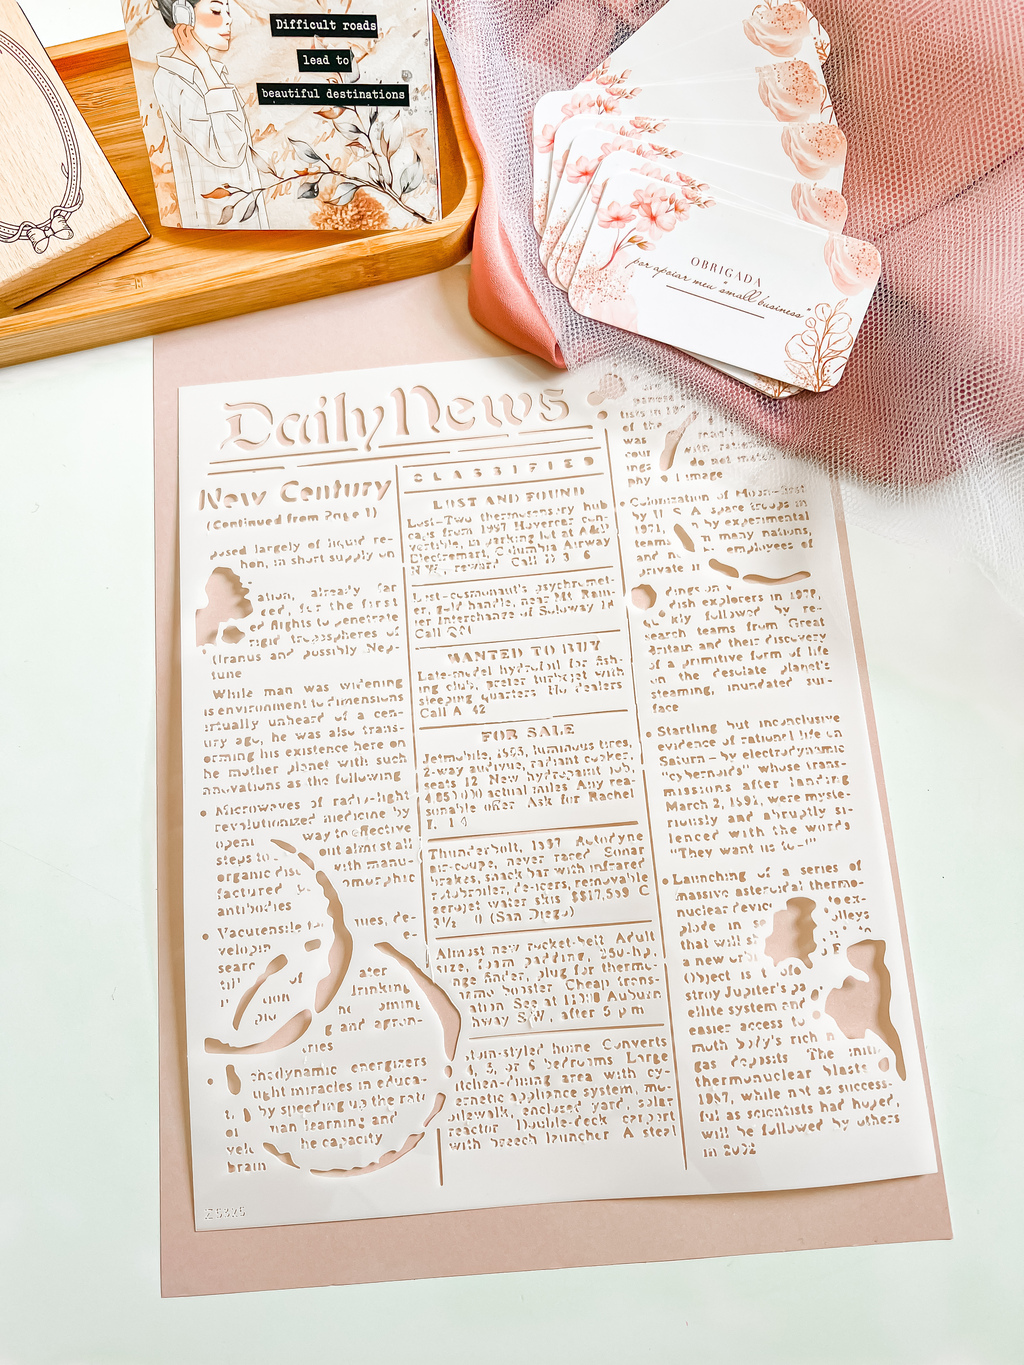 Difficult roads
lead to
beautiful destinations
OBRIGADA
por apoiar meu "small business"
Daily News
CLASSIFIED
New Century
(Continued from Page 1)
posed largely of liquid re-
hon, in short supply on
ation, already far
ced, for the first
ed flights to penetrate
rigid tropospheres of
Uranus and possibly Nep-
tune
While man was widening
is environment to dimensions
irtually unheard of a cen-
ury ago, he was also trans-
orming his existence here on
he mother planet with such
nnovations as the following
• Microwaves of radio-light
revolutionized medicine by
openi way to effective
steps to out almost all
organic dis with manu-
factured omorphic
antibodies
• Vacutensile ues, de-
velopin
sear
ater
of drinking
oming
g and agron-
tries
chodynamic energizers
ught miracles in educa-
by speeding up the rate
man learning and
he capacity
brain
LOST AND FOUND
Lost-Two thermosensory hub
caps from 1997 Hovercar con-
vertible, in parking lot at A&P
Electremart, Columbia Airway
N W, reward Call D 3 6
Lost-cosmonaut's psychromet-
er, gold handle, near Mt Rain-
ier Interchange of Soloway 14
Call
WANTED TO BUY
Late-model hydrofoil for fish-
ing club, prefer turbojet with
sleeping quarters No dealers
Call A 42
FOR SALE
Jetmobile, 1993, luminous tires,
2-way audivue, radiant cooker,
seats 12 New hydropaint job,
actual miles Any rea-
sonable offer Ask for Rachel
Thunderbolt, 1997 Autodyne
air-coupe, never raced Sonar
brakes, snack bar with infrared
rotobroiler, de-icers, removable
aerojet water skis $$17,599 C
(San Diego)
Almost new rocket-belt Adult
size, foam padding, 250-hp,
nge finder, plug for thermo-
booster Cheap trans-
ation See at Auburn
hway S W, after 5 p m
-styled home Converts
4, 5, or 6 bedrooms Large
itchen-dining area with cy-
ernetic appliance system, mo-
bilewalk, enclosed yard, solar
reactor Double-deck carport
with breech launcher A steal
tists in
of the
was with
cour do not match
ings image
phy
• Colonization of Moon-first
by U S A space troops in
1971, n by experimental
teams m many nations,
and employees of
private
dings on
dish explorers in 1979,
kly followed by re-
search teams from Great
Britain and their discovery
of a primitive form of life
on the desolate planet's
steaming, inundated sur-
face
• Startling but inconclusive
evidence of rational life on
Saturn-by electrodynamic
"cybernoids" whose trans-
missions after landing
March 2, 1991, were myste-
riously and abruptly si-
lenced with the words
"They want us to-!"
• Launching of a series of
massive asteroidal thermo-
nuclear devic to ex-
plode in se olleys
that will s
a new orbi
Object is t
stroy Jupiter's
ellite system and
easier access to
moth body's rich
gas deposits The initi
thermonuclear blasts
1987, while not as success-
ful as scientists had hoped,
will be followed by others
in 2002